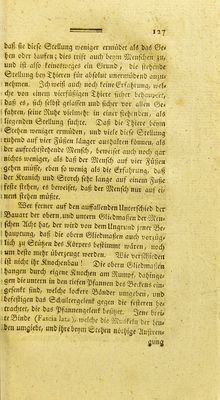 127
daß sie diese Stellung weniger ermüdet als das Ge-
hen oder laufen; dies trift auch beym Menschen zu,
und ist also keinesweges ein Grund, die stehende
Stellung bey Thieren für absolut unermüdend anzu-
nehmen. Ich weiß auch noch keine Erfahrung, wel-
che von einem vierfüßigen Thiere sicher behauptet,
daß es, sich selbst gelassen und sicher vor allen Ge-
fahren, seine Ruhe vielmehr in einer stehenden, als
liegenden Stellung suche. Daß die Thiere beym
Stehen weniger ermüden, und viele diese Stellung
ruhend auf vier Füßen länger aushalten können, als
der aufrechtstehende Mensch, beweiset auch noch gar
nichts weniger, als daß der Mensch auf vier Füßen
gehen müße, eben so wenig als die Erfahrung, daß
der Kranich und Storch sehr lange auf einem Fuße
feste stehen, es beweiset, daß der Mensch nur auf ei-
nem stehen müßte.
Wer ferner auf den auffallenden Unterschied der
Bauart der obern, und untern Gliedmaßen des Men-
schen Acht hat, der wird von dem Ungrund jener Be-
hauptung, daß die obern Gliedmaßen auch vorzüg-
lich zu Stützen des Körpers bestimmt wären, noch
um desto mehr überzeugt werden. Wie verschieden
ist nicht ihr Knochenbau! Die obern Gliedmaßen
hangen durch eigene Knochen am Rumpf, dahinge-
gen die untern in den tiefen Pfannen des Beckens ein-
gesenkt sind, welche lockere Bänder umgeben, und
befestigen das Schultergelenk gegen die festeren be-
trachtet, die das Pfannengelenk besitzet. Jene brei-
te Binde (Fascia lata), welche die Muskeln der len-
den umgiebt, und ihre beym Stehen nöthige Anstren-
gung